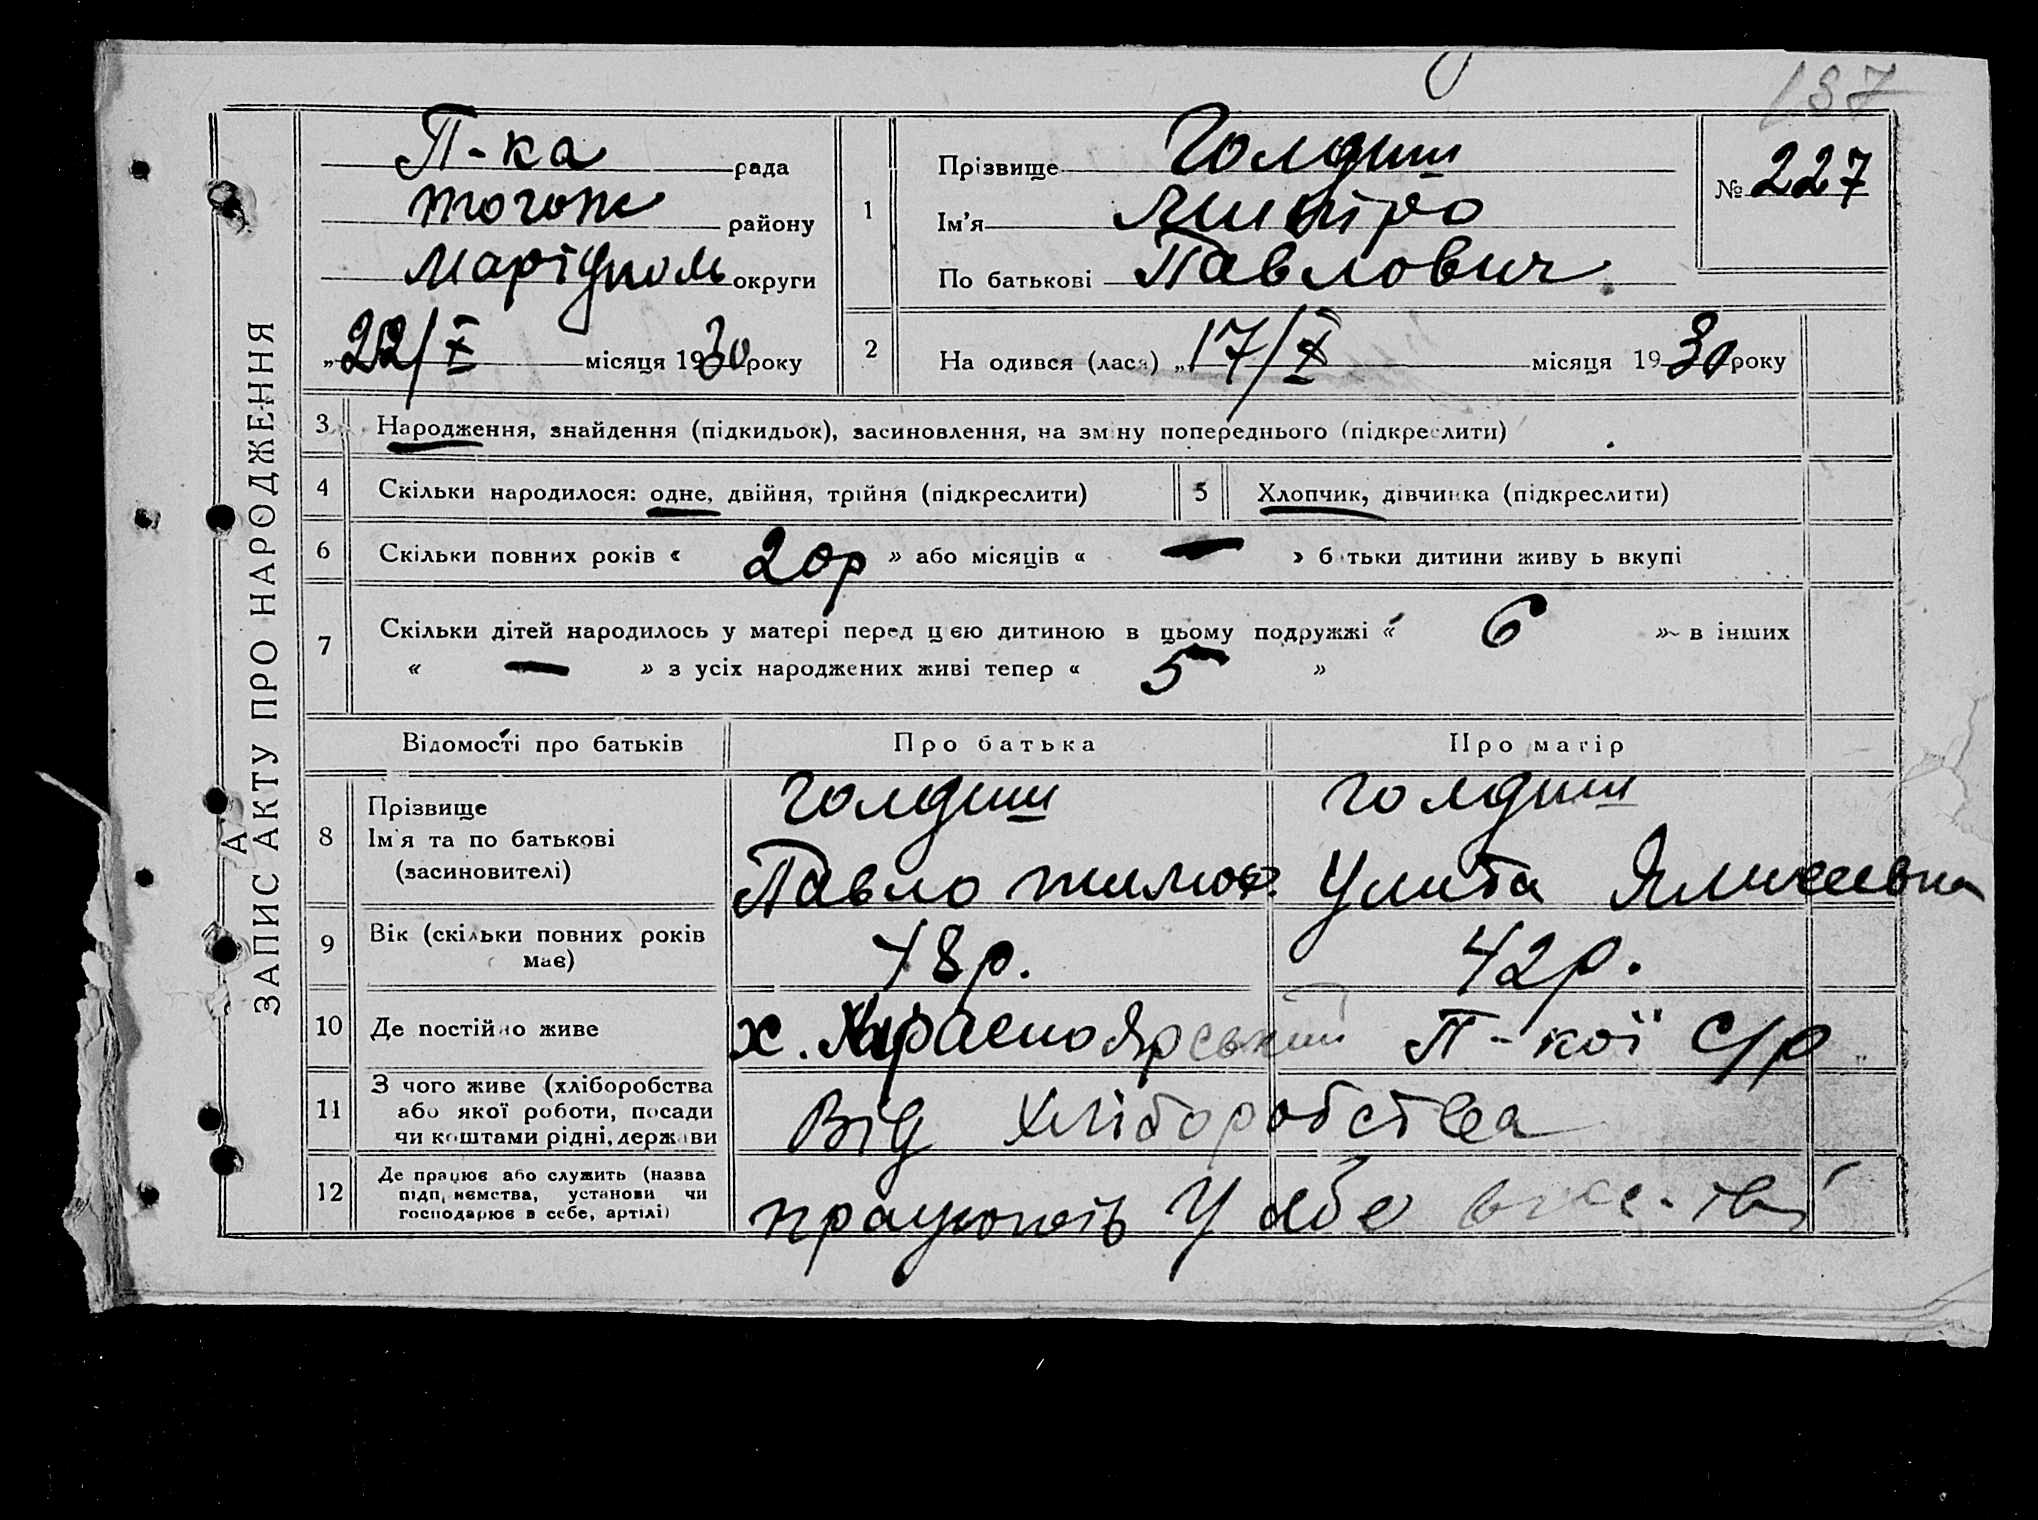 187
ЗАПИС АКТУ ПРО НАРОДЖЕННЯ
А
П-ка рада
району
Маріуполь округи
„22/X місяця 1930 року
1
Прізвище Голдиш
Ім'я Дмитро
По батькові Павлович
№ 227
2
На одився (лася) „17/X місяця 1930 року
3 Народження, знайдення (підкидьок), засиновлення, на зміну попереднього (підкреслити)
4 Скільки народилося: одне, двійня, трійня (підкреслити) 5 Хлопчик, дівчинка (підкреслити)
6 Скільки повних років « 20р » або місяців « — » батьки дитини живуть вкупі
7 Скільки дітей народилось у матері перед цією дитиною в цьому подружжі « 6 » в інших
« — » з усіх народжених живі тепер « 5 »
Відомості про батьків Про батька Про матір
8 Прізвище
Ім'я та по батькові
(засиновителі)
Голдиш Голдиш
Павло Улита
9 Вік (скільки повних років
має)
48р. 42р.
10 Де постійно живе х. Красноярський П-кої С/р
11 З чого живе (хліборобства
або якої роботи, посади
чи коштами рідні, держави
Від Хліборобства
12 Де працює або служить (назва
підприємства, установи чи
господарює в себе, артілі)
працюють У себе